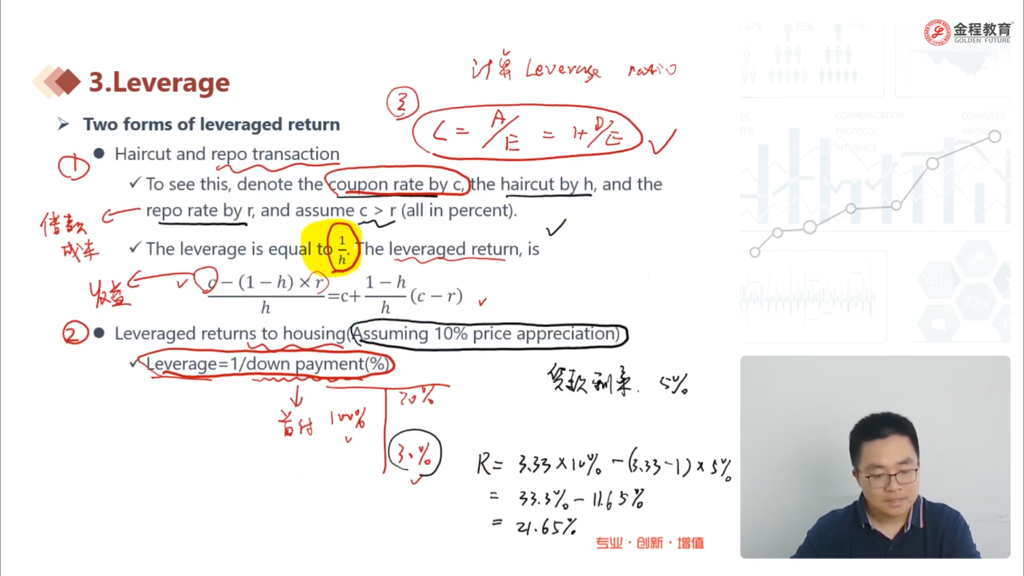 金程教育
GOLDEN FUTURE
计算 Leverage ratio
3.Leverage
③
L = A/E = 1+ D/E
Two forms of leveraged return
①
Haircut and repo transaction
To see this, denote the coupon rate by c, the haircut by h, and the
repo rate by r, and assume c > r (all in percent).
借款
成本
The leverage is equal to 1/h. The leveraged return, is
收益
c − (1 − h) × r / h = c + 1 − h / h (c − r)
②
Leveraged returns to housing(Assuming 10% price appreciation)
Leverage=1/down payment(%)
贷款利率. 5%
首付
100%
70%
30%
R = 3.33 × 10% − (3.33−1) × 5%
= 33.3% − 11.65%
= 21.65%
专业·创新·增值